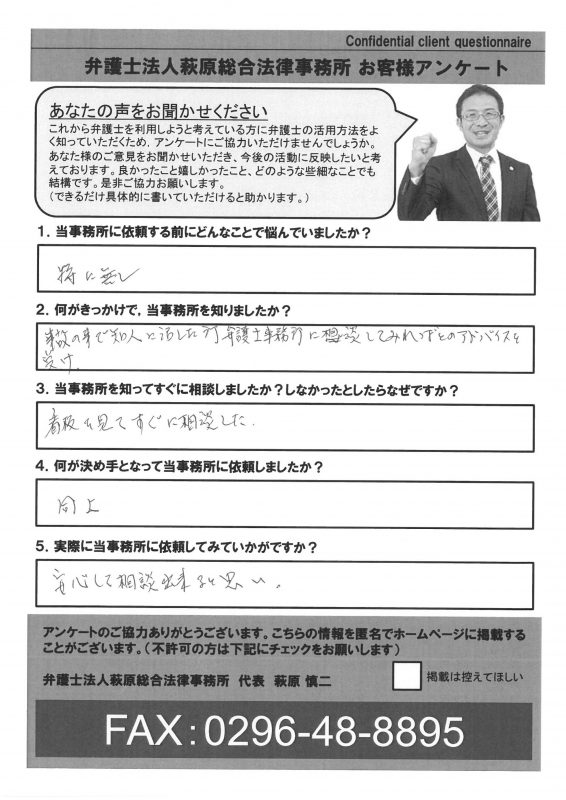 Confidential client questionnaire
弁護士法人萩原総合法律事務所 お客様アンケート
あなたの声をお聞かせください
これから弁護士を利用しようと考えている方に弁護士の活用方法をよ
く知っていただくため，アンケートにご協力いただけませんでしょうか。
あなた様のご意見をお聞かせいただき、今後の活動に反映したいと考
えております。良かったこと嬉しかったこと、どのような些細なことでも
結構です。是非ご協力お願いします。
（できるだけ具体的に書いていただけると助かります。）
1．当事務所に依頼する前にどんなことで悩んでいましたか？
特に無し
2．何がきっかけで，当事務所を知りましたか？
事故の事で知人と話した所弁護士事務所に相談してみればとのアドバイスを
受け、
3．当事務所を知ってすぐに相談しましたか？しなかったとしたらなぜですか？
看板を見てすぐに相談した．
4．何が決め手となって当事務所に依頼しましたか？
同上
5．実際に当事務所に依頼してみていかがですか？
安心して相談出来ると思い。
アンケートのご協力ありがとうございます。こちらの情報を匿名でホームページに掲載する
ことがございます。（不許可の方は下記にチェックをお願いします）
弁護士法人萩原総合法律事務所 代表 萩原 慎二
掲載は控えてほしい
FAX：0296-48-8895